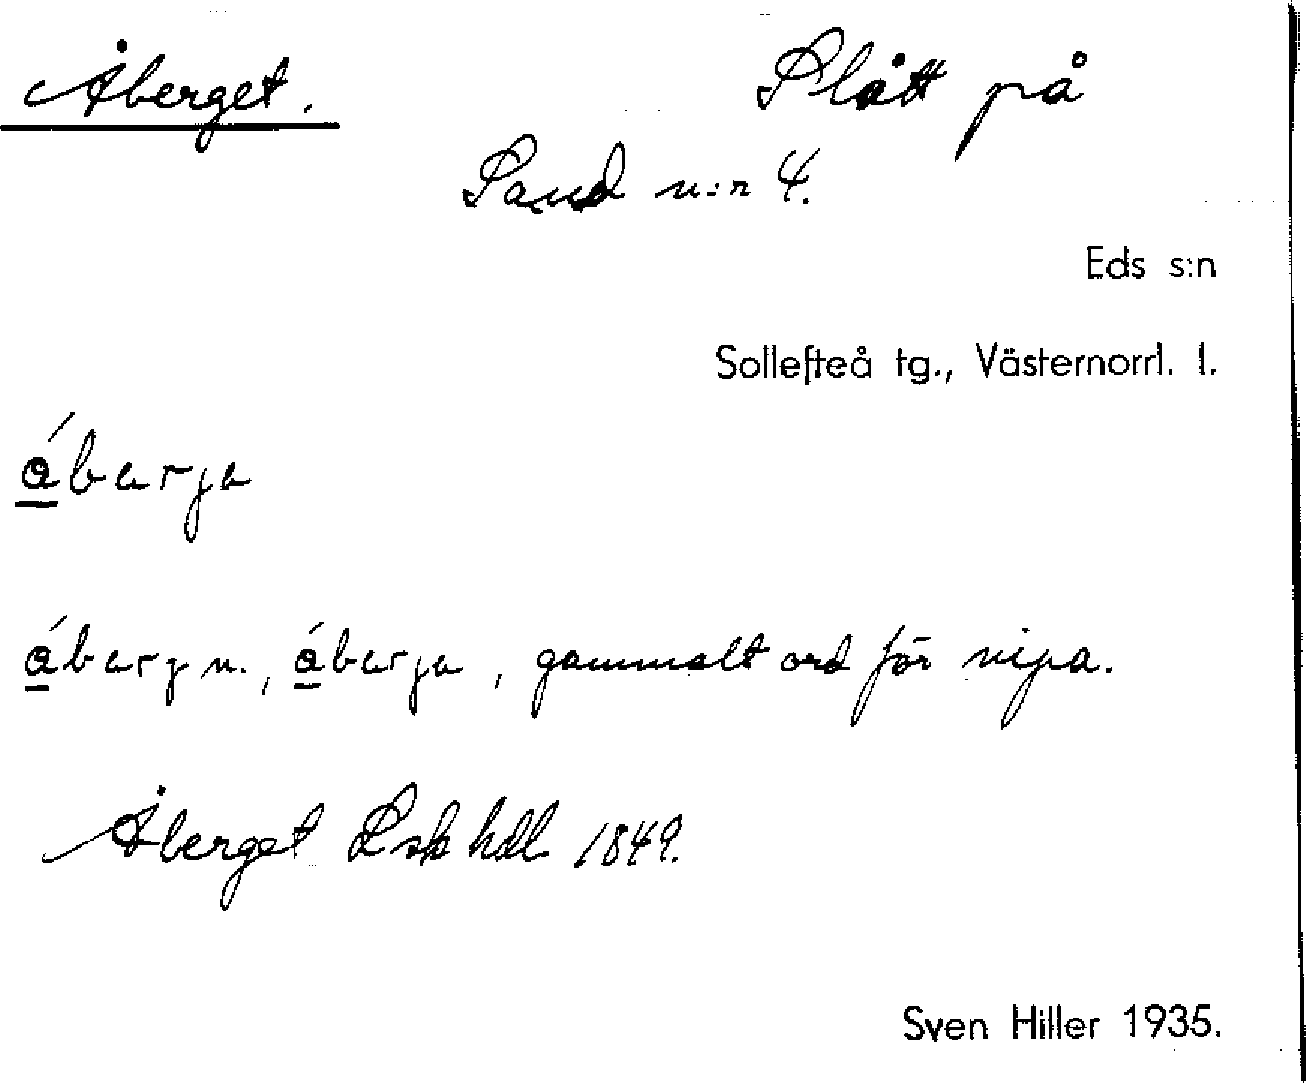 Åberget. Slått på
Sand n:r 4.
Eds s:n
Sollefteå tg., Västernorrl. l.
ǻbærja
ǻbærj n., ǻbærja, gammalt ord för nipa.
Åberget Lsk hdl 1849.
Sven Hiller 1935.